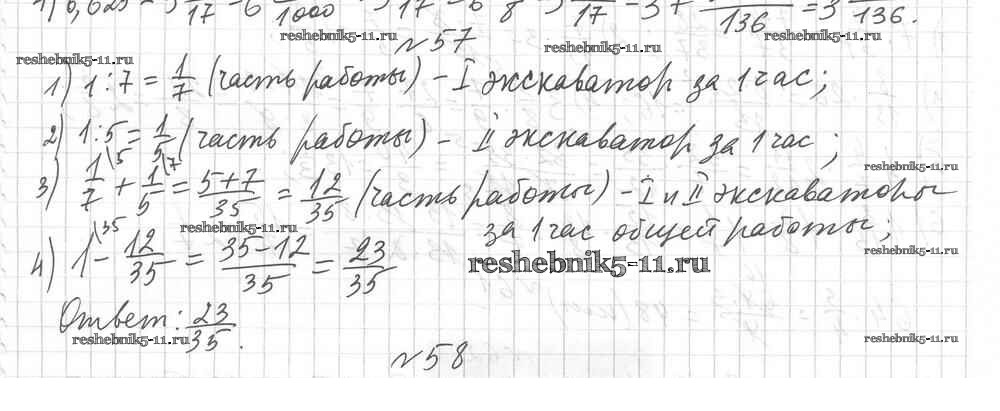 1) 0,625 - 3 17 - 6 1000 3 17 - 6 8 3 17 - 3 + 136 = 3 136.
reshebnik5-11.ru reshebnik5-11.ru reshebnik5-11.ru
№57
reshebnik5-11.ru
1) 1:7 = 1/7 (часть работы) - I экскаватор за 1 час;
2) 1:5 = 1/5 (часть работы) - II экскаватор за 1 час;
reshebnik5-11.ru
3) 1/7 \5 + 1/5 \7 = 5+7/35 = 12/35 (часть работы) - I и II экскаваторы
за 1 час общей работы;
reshebnik5-11.ru reshebnik5-11.ru
4) 1 \35 - 12/35 = 35-12/35 = 23/35
reshebnik5-11.ru
Ответ: 23/35.
reshebnik5-11.ru reshebnik5-11.ru
№58